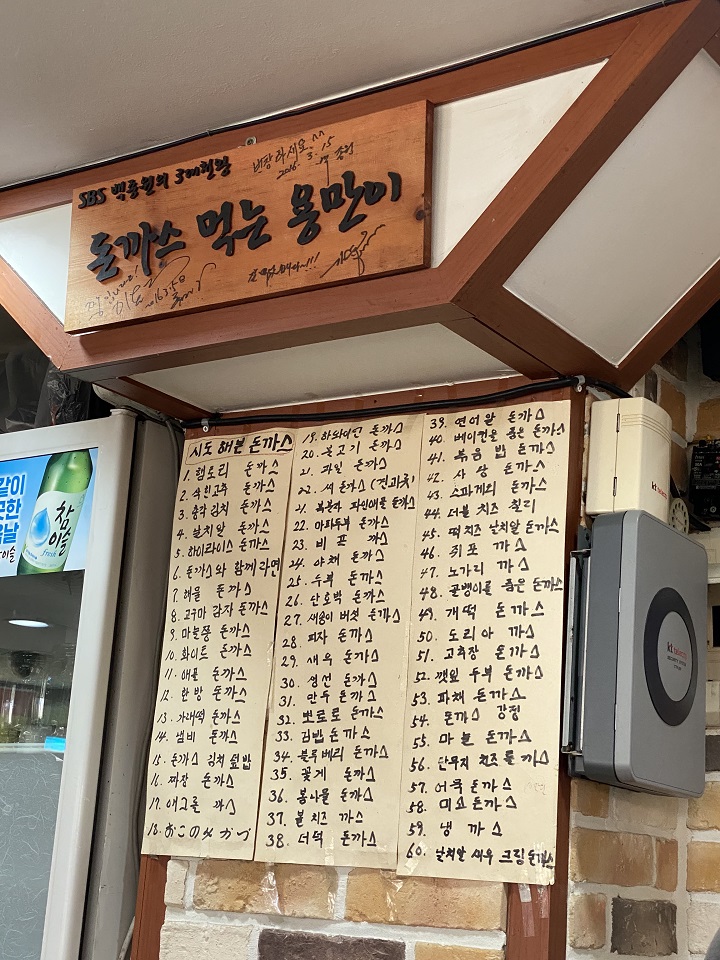 SBS 백종원의 3대천왕
대장 라세요 ^^
2016. 3. 15
돈까스 먹는 용만이
같이
참이슬
fresh
시도 해본 돈까스
1. 햄토리 돈까스
2. 삭힌고추 돈까스
3. 총각김치 돈까스
4. 날치알 돈까스
5. 하이라이스 돈까스
6. 돈까스와 함께라면
7. 해물 돈까스
8. 고구마 감자 돈까스
9. 마늘쫑 돈까스
10. 화이트 돈까스
11. 애플 돈까스
12. 한방 돈까스
13. 가래떡 돈까스
14. 냄비 돈까스
15. 돈까스 김치 덮밥
16. 짜장 돈까스
17. 에그롤 까스
18. おこのみカツ
19. 하와이안 돈까스
20. 불고기 돈까스
21. 과일 돈까스
22. 씨 돈까스 (견과류)
21. 복분자 파인애플 돈까스
22. 마파두부 돈까스
23. 비프 까스
24. 야채 돈까스
25. 두부 돈까스
26. 단호박 돈까스
27. 새송이 버섯 돈까스
28. 피자 돈까스
29. 새우 돈까스
30. 생선 돈까스
31. 만두 돈까스
32. 뽀로로 돈까스
33. 김밥 돈까스
34. 블루베리 돈까스
35. 꽃게 돈까스
36. 봄나물 돈까스
37. 볼 치즈 까스
38. 더덕 돈까스
39. 연어알 돈까스
40. 베이컨을 품은 돈까스
41. 볶음밥 돈까스
42. 사상 돈까스
43. 스파게티 돈까스
44. 더블 치즈 칠리
45. 떡치즈 날치알 돈까스
46. 쥐포 까스
47. 노가리 까스
48. 골뱅이를 품은 돈까스
49. 개떡 돈까스
50. 도리아 까스
51. 고추장 돈까스
52. 깻잎 두부 돈까스
53. 파채 돈까스
54. 돈까스 강정
55. 마늘 돈까스
56. 단무지 치즈롤 까스
57. 어묵 돈까스
58. 미소 돈까스
59. 냉 까스
60. 날치알 새우 크림 돈까스
kt telecop
kt telecop